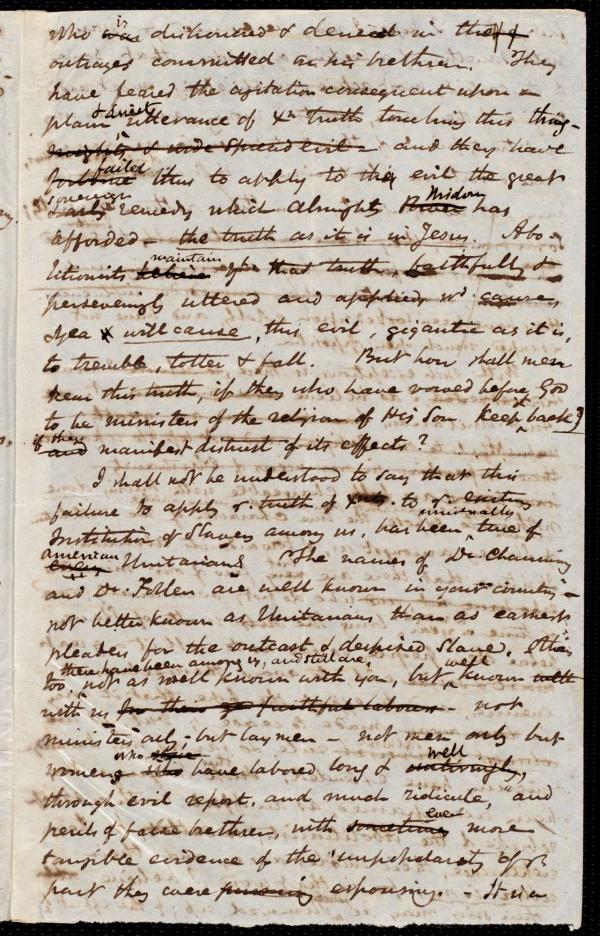 who is was dishonored & denied in the
outrages committed on his brethren. They
have feared the agitation consequent upon a
plain & direct utterance of Xn truth touching this thing -
might & wide spread evil - and they have
forborne failed thus to apply to this evil the great
sovereign remedy which Almighty Power Wisdom has
afforded - the truth as it is in Jesus. Abo-
litionists believe maintain yt that truth, faithfully &
perseveringly uttered and applied, wd cause,
yea will cause, this evil, gigantic as it is,
to tremble, totter & fall. But how shall men
hear this truth, if they who have vowed before God
to be ministers of the religion of His Son keep it back?
and if they manifest distrust of its effects?
I shall not be understood to say that this
failure to apply ye truth of to ye existing
Institution of Slavery among us, has been universally true of
every American Unitarians. The names of Dr. Channing
and Dr. Follen are well known in your country -
not better known as Unitarians than as earnest
pleaders for the outcast & despised Slave. Others
too there have been among us, and still are, not as well known with you, but well known with
with us for their faithful labours - not
ministers only, - but laymen - not men only but
women, who have labored long & untiringly, well
through evil report, and much ridicule, "and
perils of false brethren, with sometimes even more
tangible evidence of the unpopularity of ye
part they were pursuing espousing. - It is a